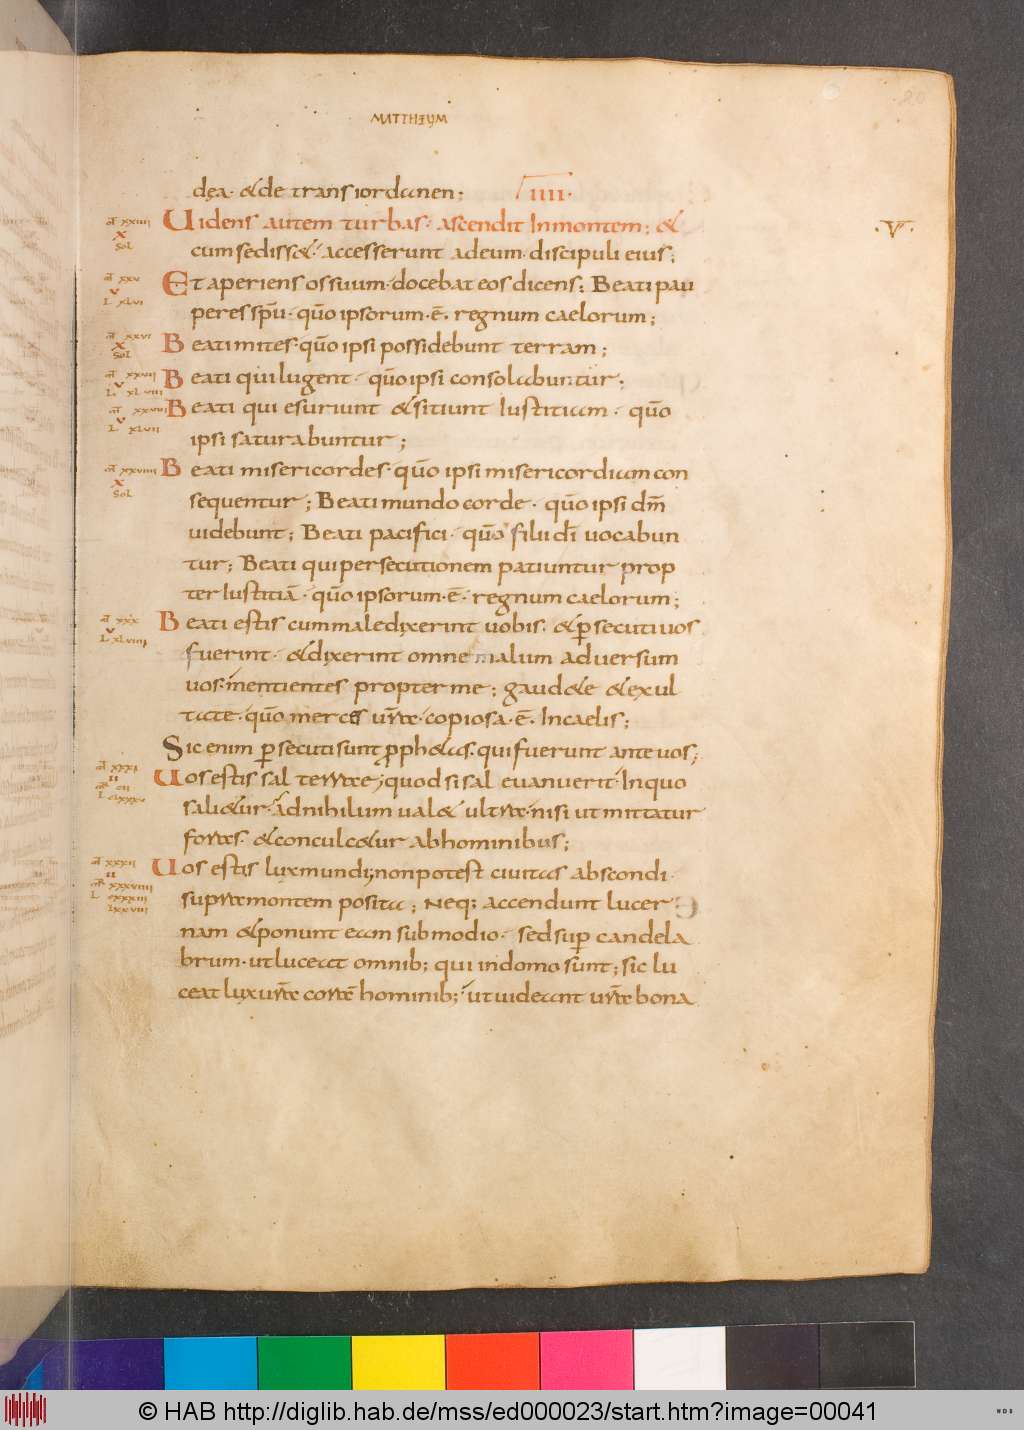 MATTHEUM
20
dęa· & de trans iordanen; IIII·
Uidens autem turbas· ascendit In montem; &
mt xxiiii
x
sol
·V·
cum sediss&· accesserunt ad eum· discipuli eius;
Et aperiens os suum· docebat eos dicens; Beati pau
mt xxv
v
L xlvi
peres spū· qūo ipsorum· ē· regnum caelorum;
Beati mites· qūo ipsi possidebunt terram;
mt xxvi
x
sol
Beati qui lugent· qūo ipsi consolabuntur;
mt xxvii
v
L xlviii
Beati qui esuriunt & sitiunt Iustitiam· qūo
mt xxviii
v
L xlvii
ipsi saturabuntur;
Beati misericordes· qūo ipsi misericordiam con
mt xxviiii
x
sol
sequentur; Beati mundo corde· qūo ipsi dm̄
uidebunt; Beati pacifici· qūo filii dī uocabun
tur; Beati qui persecutionem patiuntur prop
ter Iustitiā· qūo ipsorum· ē· regnum caelorum;
Beati estis cum maledixerint uobis· & p̄secuti uos
mt xxx
v
L xlviiii
fuerint· & dixerint omne malum aduersum
uos· mentientes propter me; gaud&e & exul
tate· qūo merces ur̄ae· copiosa· ē· In caelis;
Sic enim p̄secuti sunt proph&as· qui fuerunt ante uos;
Uos estis sal terrae; quod si sal euanuerit· In quo
mt xxxi
ii
sali&ur· ad nihilum ual& ultrae· nisi ut mittatur
foras· & conculc&ur ab hominibus;
Uos estis lux mundi; non potest ciuitas abscondi·
mt xxxii
ii
mr xxxviiii
L cxxxiii
lxxviii
supra montem posita; Neq; accendunt lucer
nam & ponunt eam sub modio· sed sup̄ candela
brum· ut luceat omnib; qui in domo sunt; sic lu
ceat lux ur̄ae corā hominib; ut uideant ur̄ae bona
© HAB http://diglib.hab.de/mss/ed000023/start.htm?image=00041
WDB